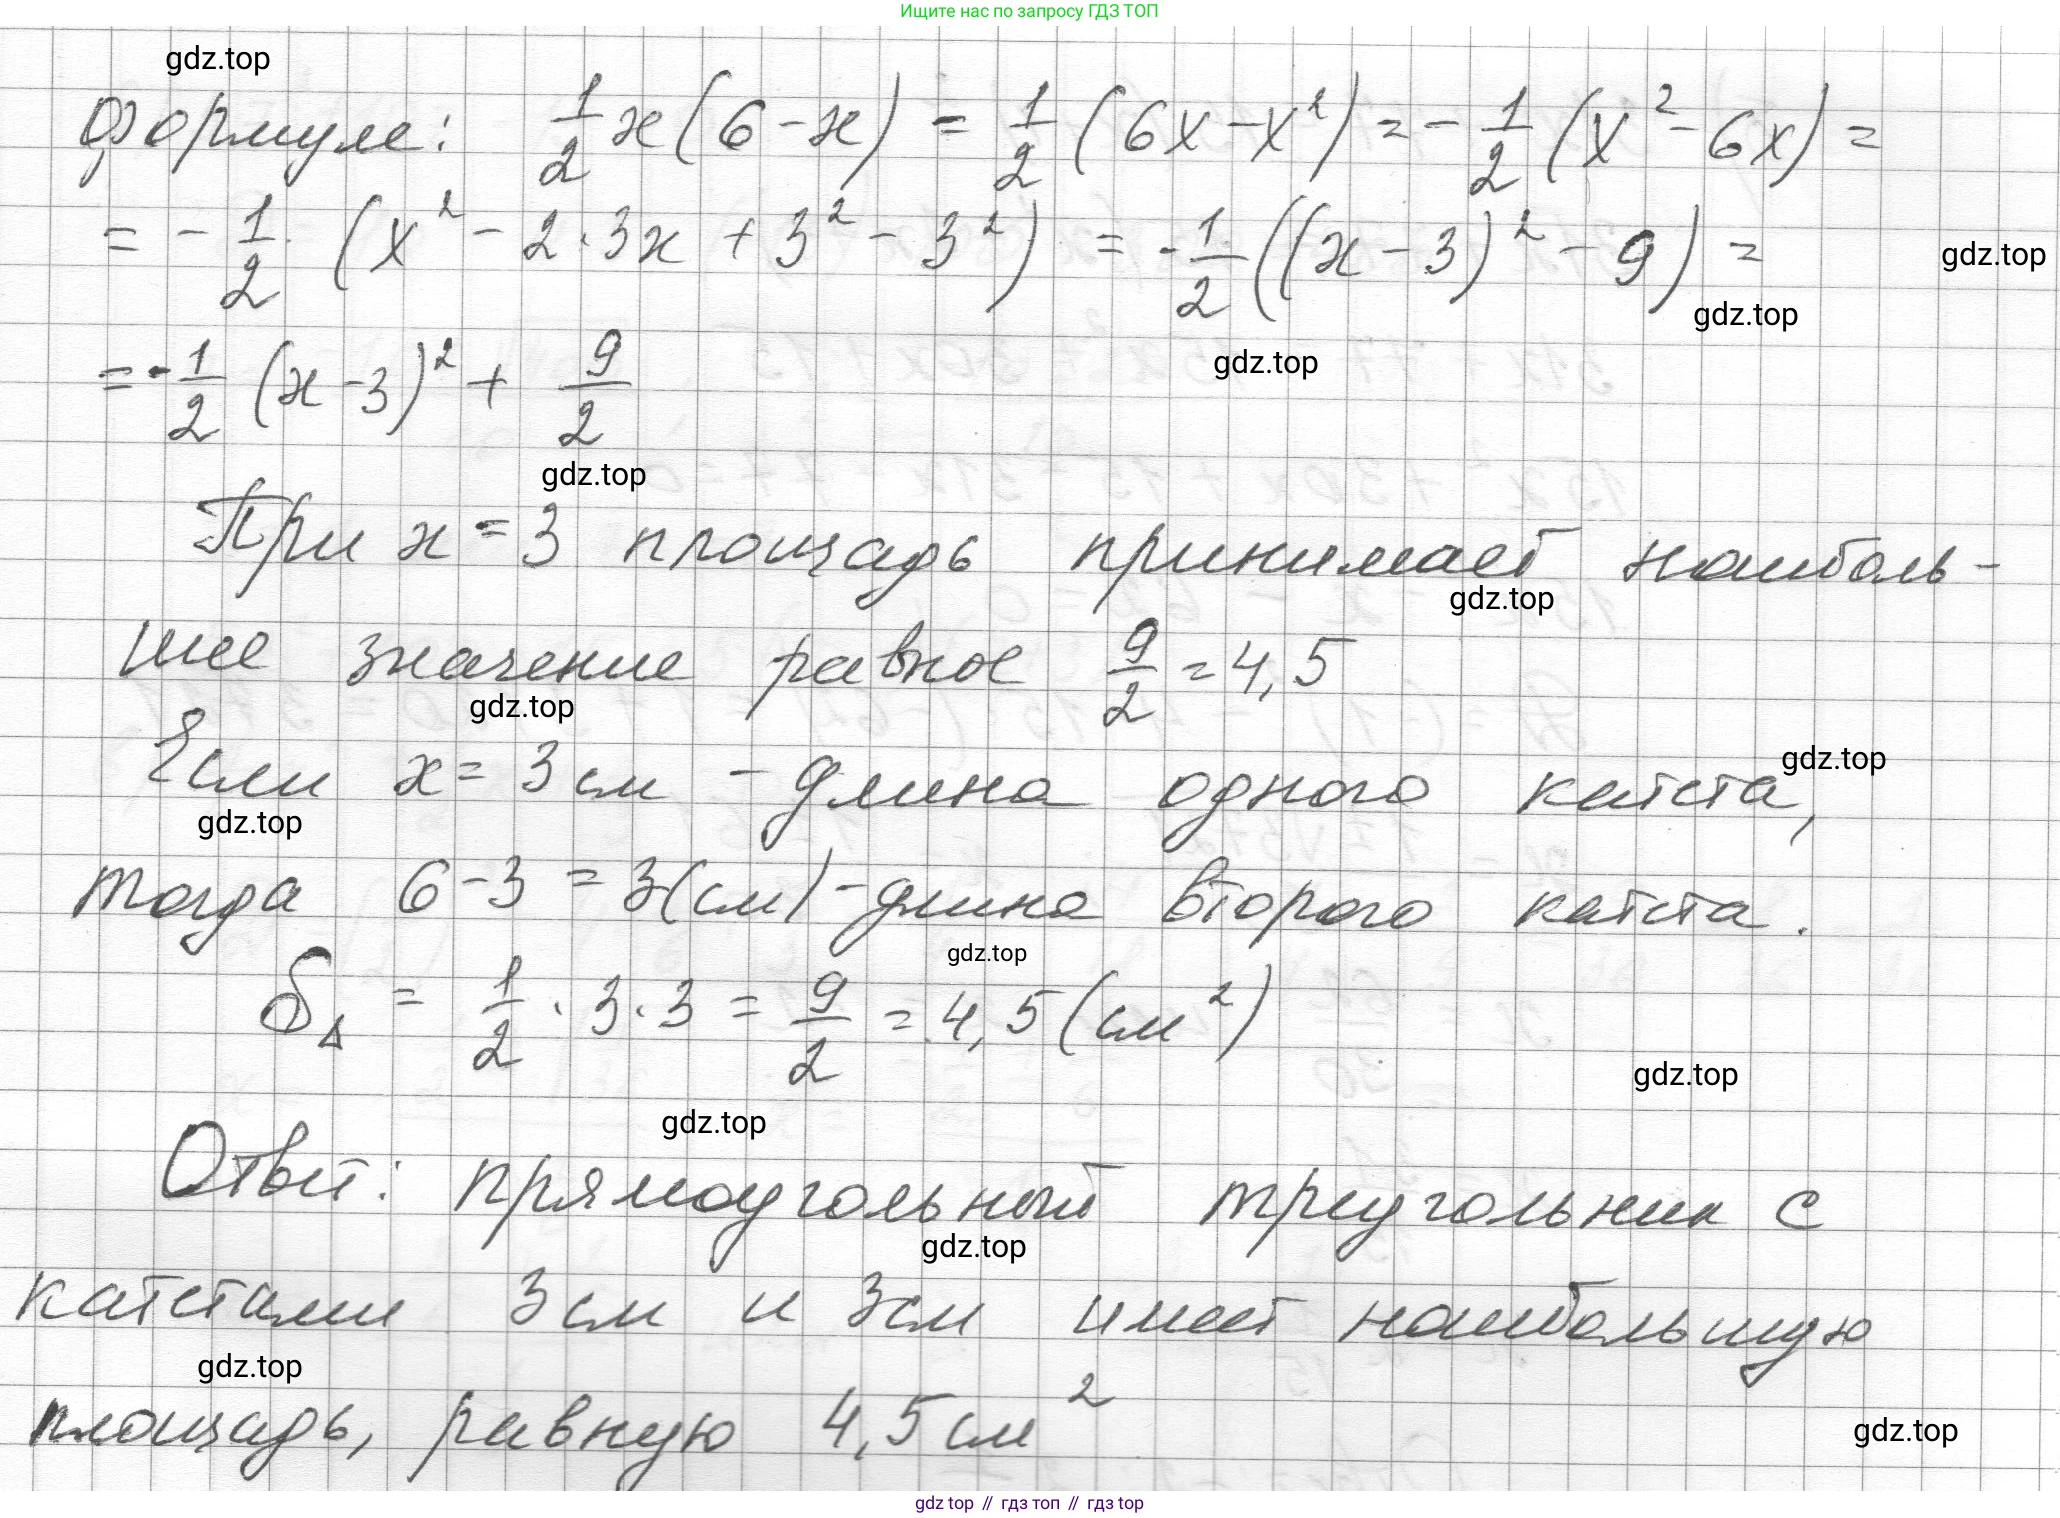 Ищите нас по запросу ГДЗ ТОП
gdz.top
формуле: 1/2 x(6-x) = 1/2 (6x-x²) = -1/2 (x²-6x) =
= -1/2 (x² - 2·3x + 3² - 3²) = -1/2 ((x-3)² - 9) =
gdz.top
gdz.top
gdz.top
= -1/2 (x-3)² + 9/2
gdz.top
При x = 3 площадь принимает наиболь-
gdz.top
шее значение равное 9/2 = 4,5
gdz.top
Если x = 3 см - длина одного катета,
gdz.top
gdz.top
тогда 6-3 = 3(см) - длина второго катета.
gdz.top
S△ = 1/2 · 3 · 3 = 9/2 = 4,5 (см²)
gdz.top
gdz.top
Ответ: прямоугольный треугольник с
gdz.top
катетами 3 см и 3 см имеет наибольшую
gdz.top
площадь, равную 4,5 см²
gdz.top
gdz top // гдз топ // gdz top